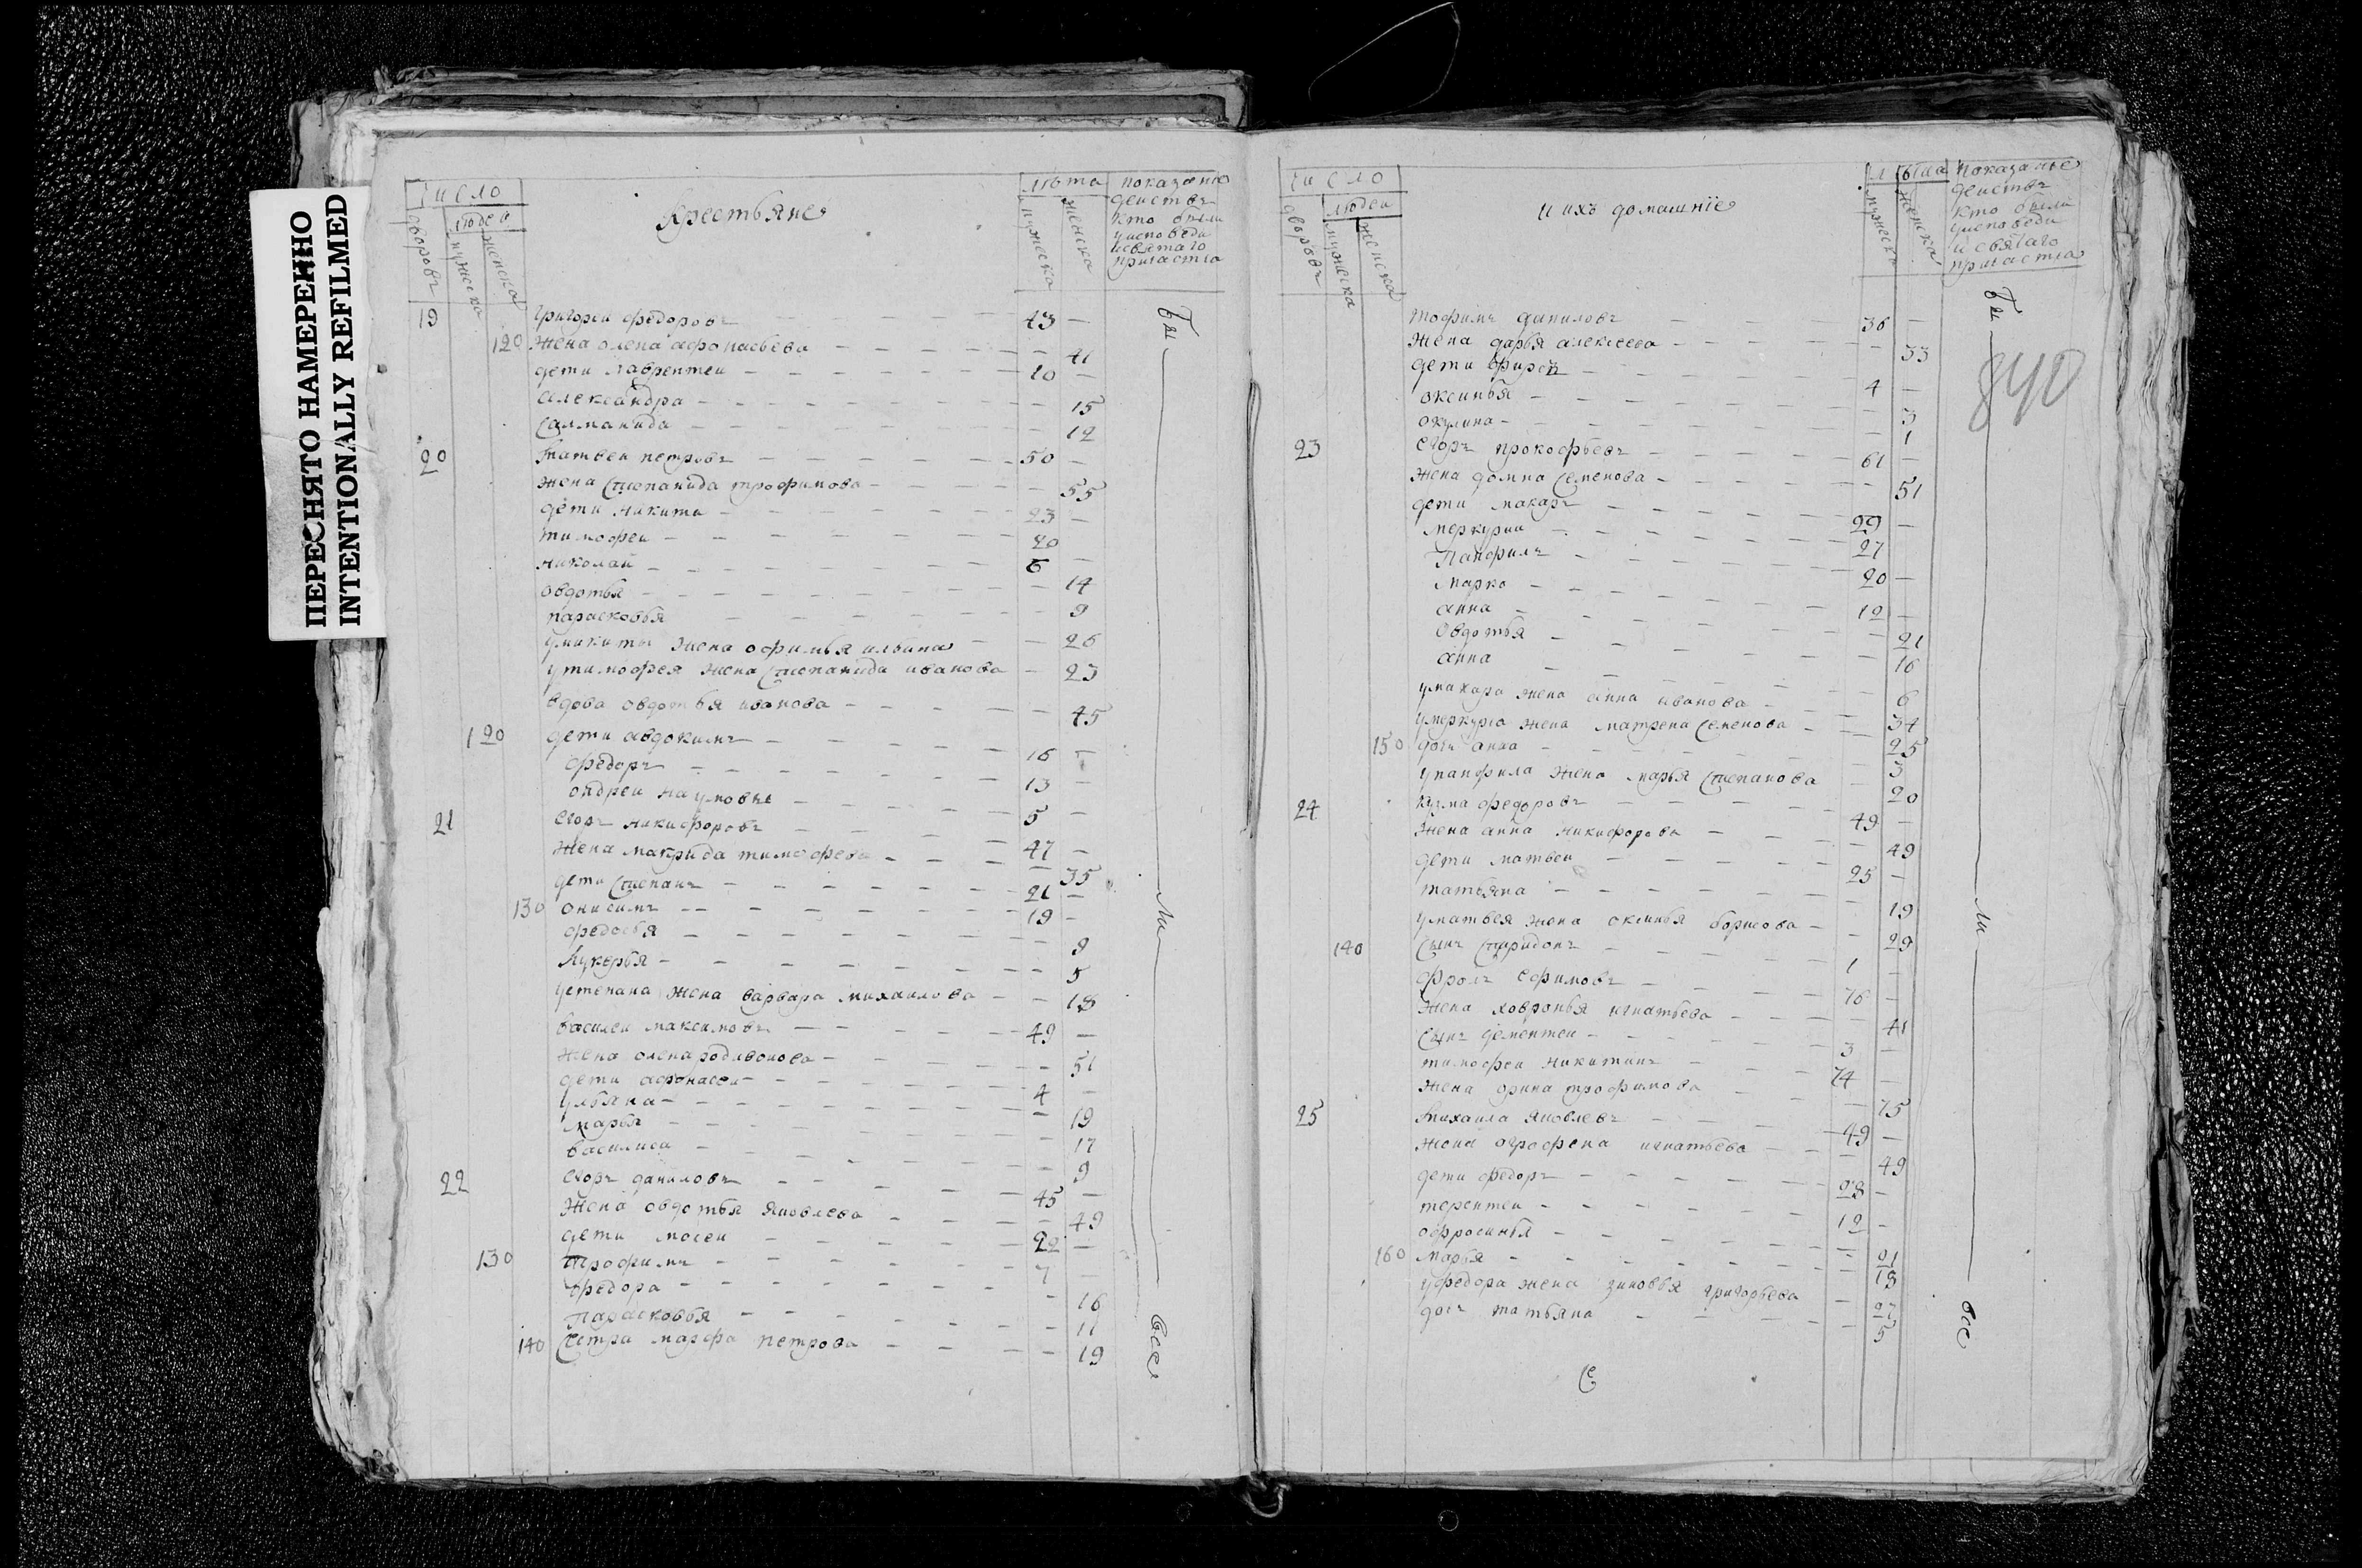 ПЕРЕСНЯТО НАМЕРЕННО
INTENTIONALLY REFILMED
число
людеи
дворовъ
мужеска
женска
Крестьяне
лѣта
мужеска
женска
показание
деиствъ
кто были
у исповеди
и святаго
причастия
19 Григореи федоровъ 43
120 жена олена афонасьева 41
дети лаврентеи 10
александра 15
салманида 12
20 матвеи петровъ 50
жена степанида трофимова 55
дети никита 23
тимофеи 20
николаи 6
овдотья 14
парасковья 9
у никиты жена офимья ильина 26
у тимофея жена степанида иванова 23
вдова овдотья иванова 45
120 дети авдокимъ 16
федоръ 13
ондреи наумовы 5
21 егоръ никифоровъ 47
жена макрида тимофеева 35
дети степанъ 21
130 онисимъ 19
федосья 9
лукерья 5
у степана жена варвара михаилова 18
василеи максимовъ 49
жена олена родивонова 51
дети афонасеи 4
ульяна 19
марья 17
василиса 9
22 егоръ даниловъ 45
жена овдотья яковлева 49
дети мосеи 22
130 трофимъ 7
федора 16
парасковья 11
140 сестра марфа петрова 19
бы
ли
все
число
людеи
дворовъ
мужеска
женска
и ихъ домашнїе
лѣта
мужеска
женска
показание
деиствъ
кто были
у исповеди
и святаго
причастия
840
даниловъ 36
жена дарья алексеева 33
дети 4
оксинья 3
окулина 1
23 егоръ прокофьевъ 61
жена домна семенова 51
дети макаръ 29
меркурии 27
панфилъ 20
марко 12
анна 21
овдотья 16
анна 6
у макара жена анна иванова 34
у меркурია жена матрена семенова 25
150 дочь анна 3
у панфила жена марья степанова 20
24 кузма федоровъ 49
жена анна никифорова 49
дети матвеи 25
татьяна 19
у матвея жена оксинья борисова 29
140 сынъ спиридонъ 1
фролъ ефимовъ 76
жена ховронья игнатьева 41
сынъ дементеи 3
тимофеи никитинъ 74
жена орина трофимова 75
25 михаила яковлевъ 49
жена огрофена игнатьева 49
дети федоръ 28
терентеи 12
офросинья 21
160 марья 18
у федора жена зиновья григорьева 27
дочь татьяна 5
бы
ли
все